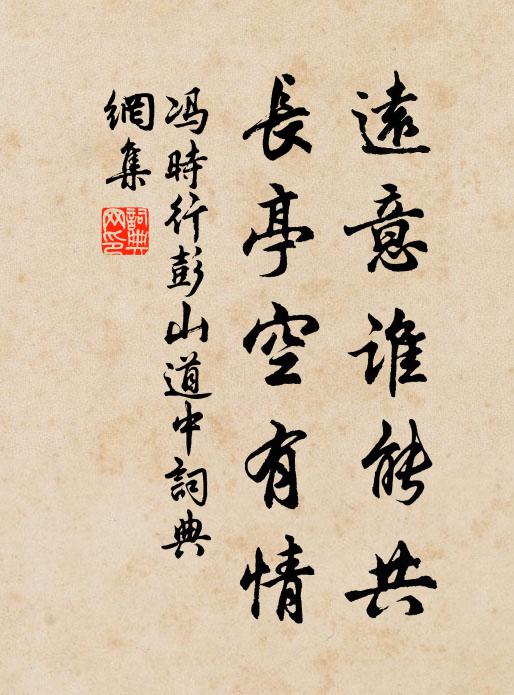 遠意誰能共
長亭空有情
馮時行彭山道中詞典
網集
詞典網印